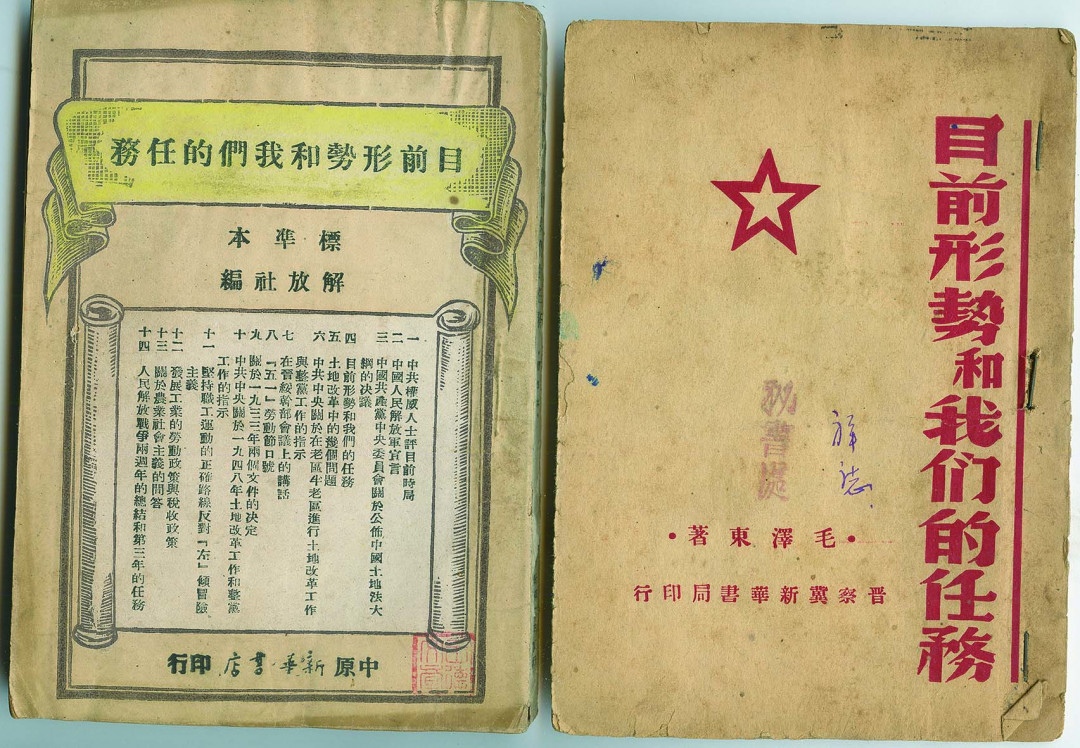 目前形勢和我們的任務
標準本
解放社編
一 中共權威人士評目前時局
二 中國人民解放軍宣言
三 中國共產黨中央委員會關於公佈中國土地法大
綱的決議
四 目前形勢和我們的任務
五 土地改革中的幾個問題
六 中共中央關於在老區半老區進行土地改革工作
與整黨工作的指示
七 在晋綏幹部會議上的講話
八 『五一』勞動節口號
九 關於一九三三年兩個文件的決定
十 中共中央關於一九四八年土地改革工作和整黨
工作的指示
十一 堅持職工運動的正確路線反對『左』傾冒險
主義
十二 發展工業的勞動政策與稅收政策
十三 關於農業社會主義的問答
十四 人民解放戰爭兩週年的總結和第三年的任務
中原新華書店印行
目前形勢和我们的任務
秘書處
•毛澤東著•
晋察冀新華書局印行